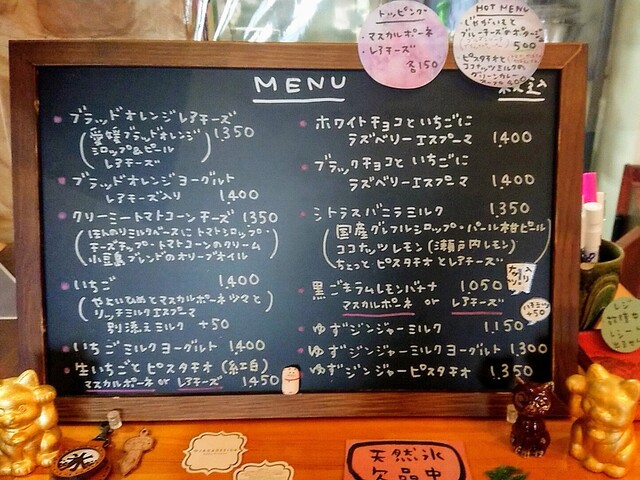 トッピング
・マスカルポーネ
・レアチーズ
各150
HOT MENU
じゃがいもと
ブルーチーズのポタージュ
500
ピスタチオと
ココナッツミルクの
グリーンカレー
MENU
税込
ブラッドオレンジレアチーズ
1,350
(愛媛ブラッドオレンジ
シロップ&ピール
レアチーズ)
ブラッドオレンジヨーグルト
レアチーズ入り 1,400
クリーミートマトコーンチーズ 1,350
(ほんのりミルクベースにトマトシロップ・
チーズチップ・トマトコーンのクリーム
小豆島ブレンドのオリーブオイル)
いちご 1,400
(やよいひめとマスカルポーネツマと
リッチミルクエスプーマ
別添えミルク +50)
いちごミルクヨーグルト 1,400
生いちごとピスタチオ (紅白)
マスカルポーネ or レアチーズ 1,450
ホワイトチョコといちごに
ラズベリーエスプーマ 1,400
ブラックチョコといちごに
ラズベリーエスプーマ 1,400
シトラスバニラミルク 1,350
(国産グレフルシロップ・パール柑ピール
ココナッツレモン(瀬戸内レモン)
ちょっとピスタチオとレアチーズ)
黒ごまラムレモンバナナ 1,050
マスカルポーネ or レアチーズ
入り
ハチミツ
+50
ゆずジンジャーミルク 1,150
ゆずジンジャーミルクヨーグルト 1,300
ゆずジンジャーピスタチオ 1,350
天然氷
欠品中